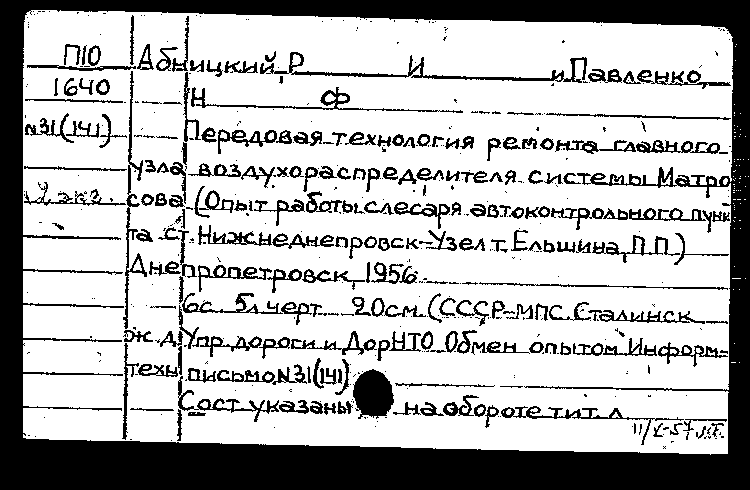 П10 Абницкий, Р И и Павленко,
1640 Н Ф
№31(141) Передовая технология ремонта главного
узла воздухораспределителя системы Матро
2 экз. сова (Опыт работы слесаря автоконтрольного пунк
та ст. Нижнеднепровск-Узел т. Ельшина, П.П.)
Днепропетровск, 1956.
6с. 5л черт 20см (СССР-МПС. Сталинск
ж.д Упр. дороги и ДорНТО Обмен опытом Информ-
техн письмо №31(141)
Сост указаны на обороте тит. л